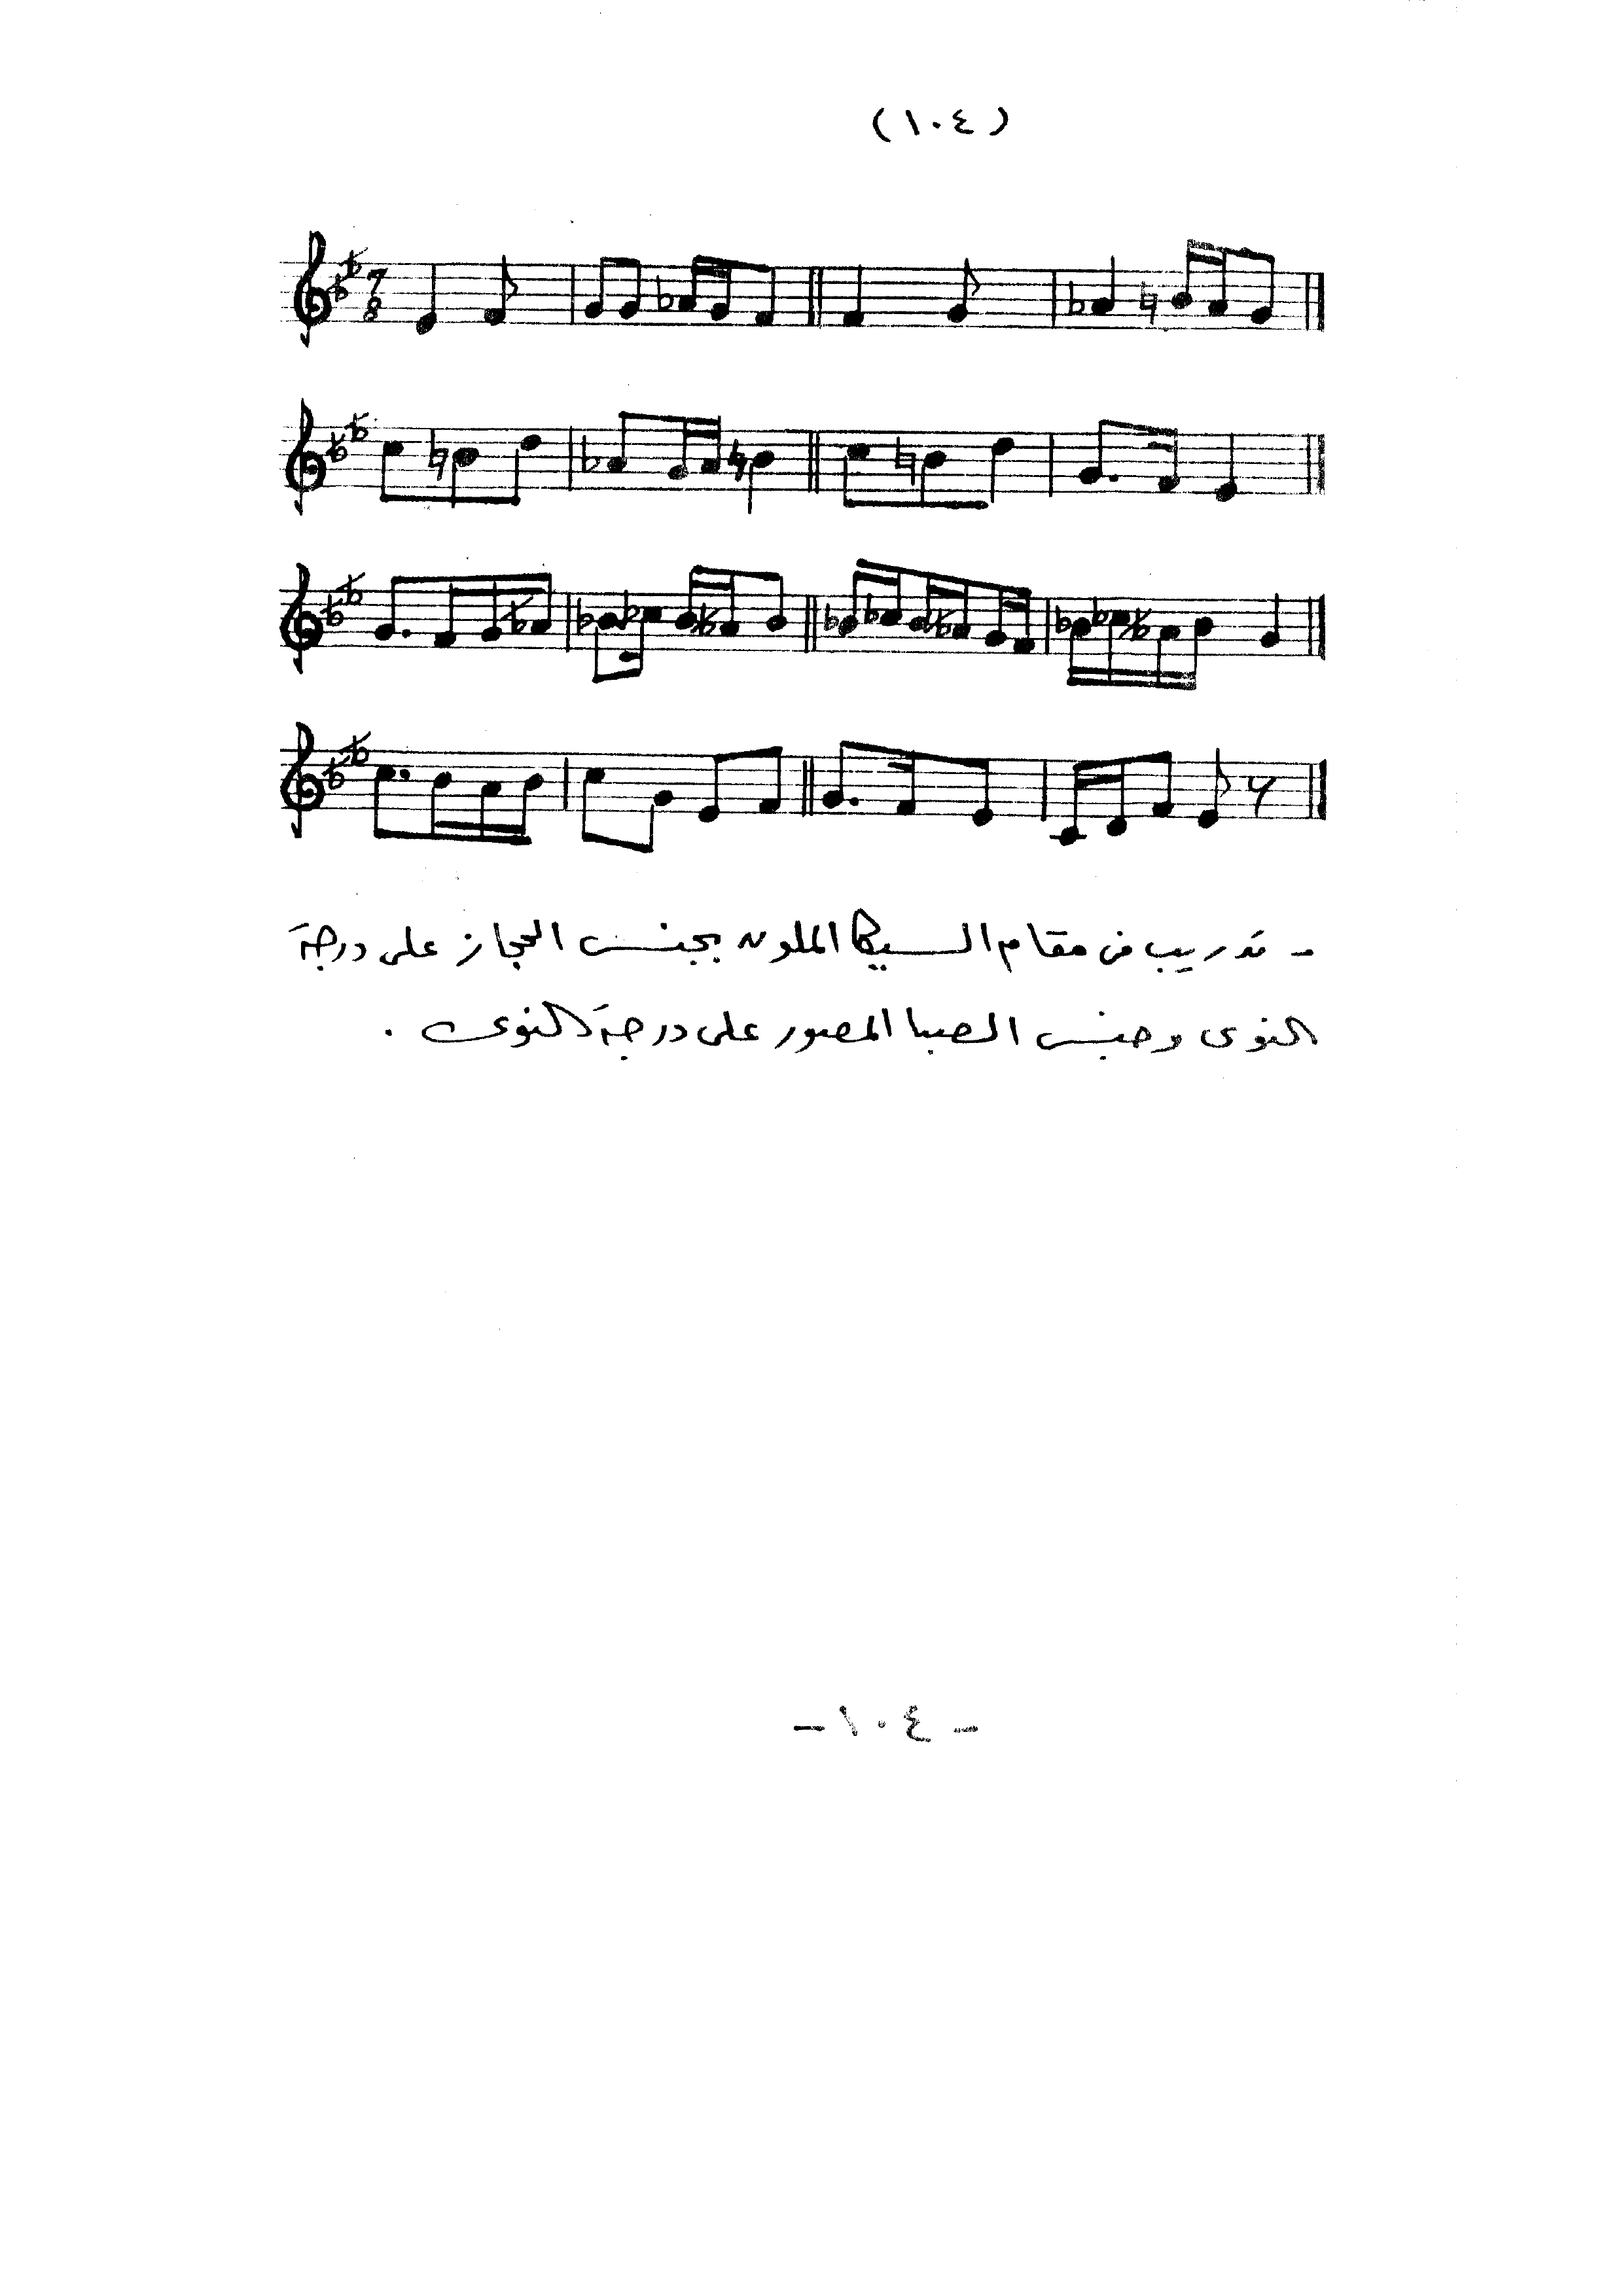 (١٠٤)
7
8
- تدريب من مقام السيكا الملون بجنس الحجاز على درجة
النوى وجنس الصبا المصور على درجة النوى .
- ١٠٤ -